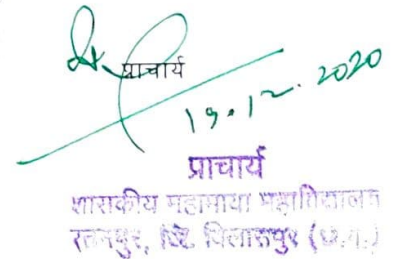 प्राचार्य
19.12.2020
प्राचार्य
शासकीय महामाया महाविद्यालय
रतनपुर, जि. बिलासपुर (छ.ग.)